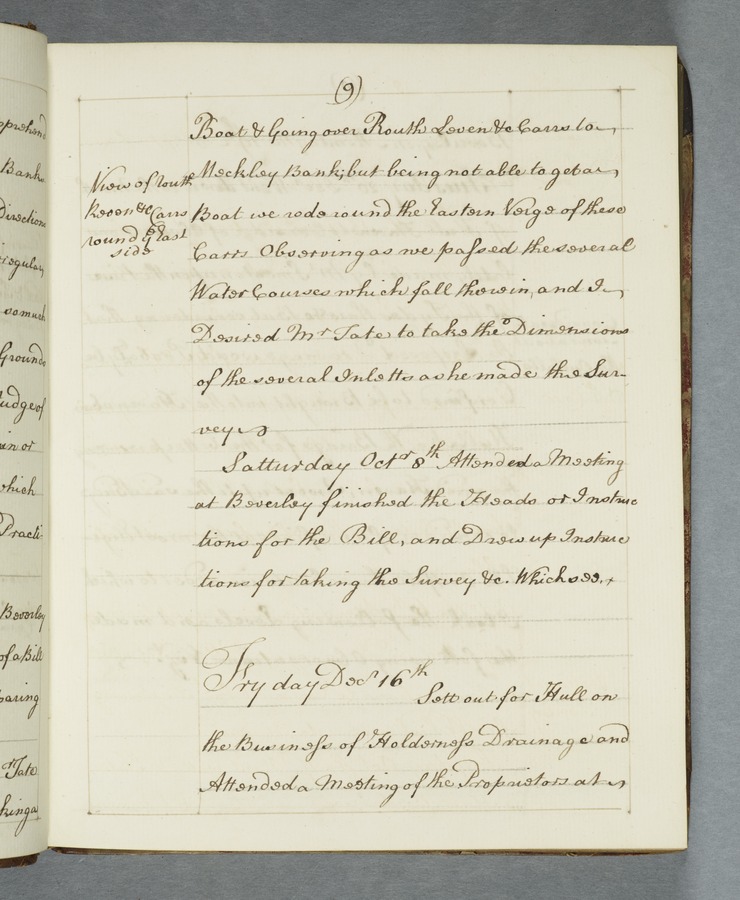 pprehend
Bank
Direction
rregular
so much
Grounds
udge of
which
Practi
Beverley
of a Bill
paring
Tate
king a
(9)
Boat & Going over Routh Leven &c Carrs to
Meckley Bank; but being not able to get a
Boat we rode round the Eastern Verge of these
Carrs Observing as we passed the several
Water Courses which fall therein, and I
Desired Mr Tate to take the Dimensions
of the several Inletts as he made the Sur-
vey
View of Routh
Leven &c Carrs
round ye East
side
Satturday Octr 8th Attended a Meeting
at Beverley finished the Heads or Instruc
tions for the Bill, and Drew up Instruc
tions for taking the Survey &c. Which see.
Fryday Decr 16th
Sett out for Hull on
the Business of Holderness Drainage and
Attended a Meeting of the Proprietors at